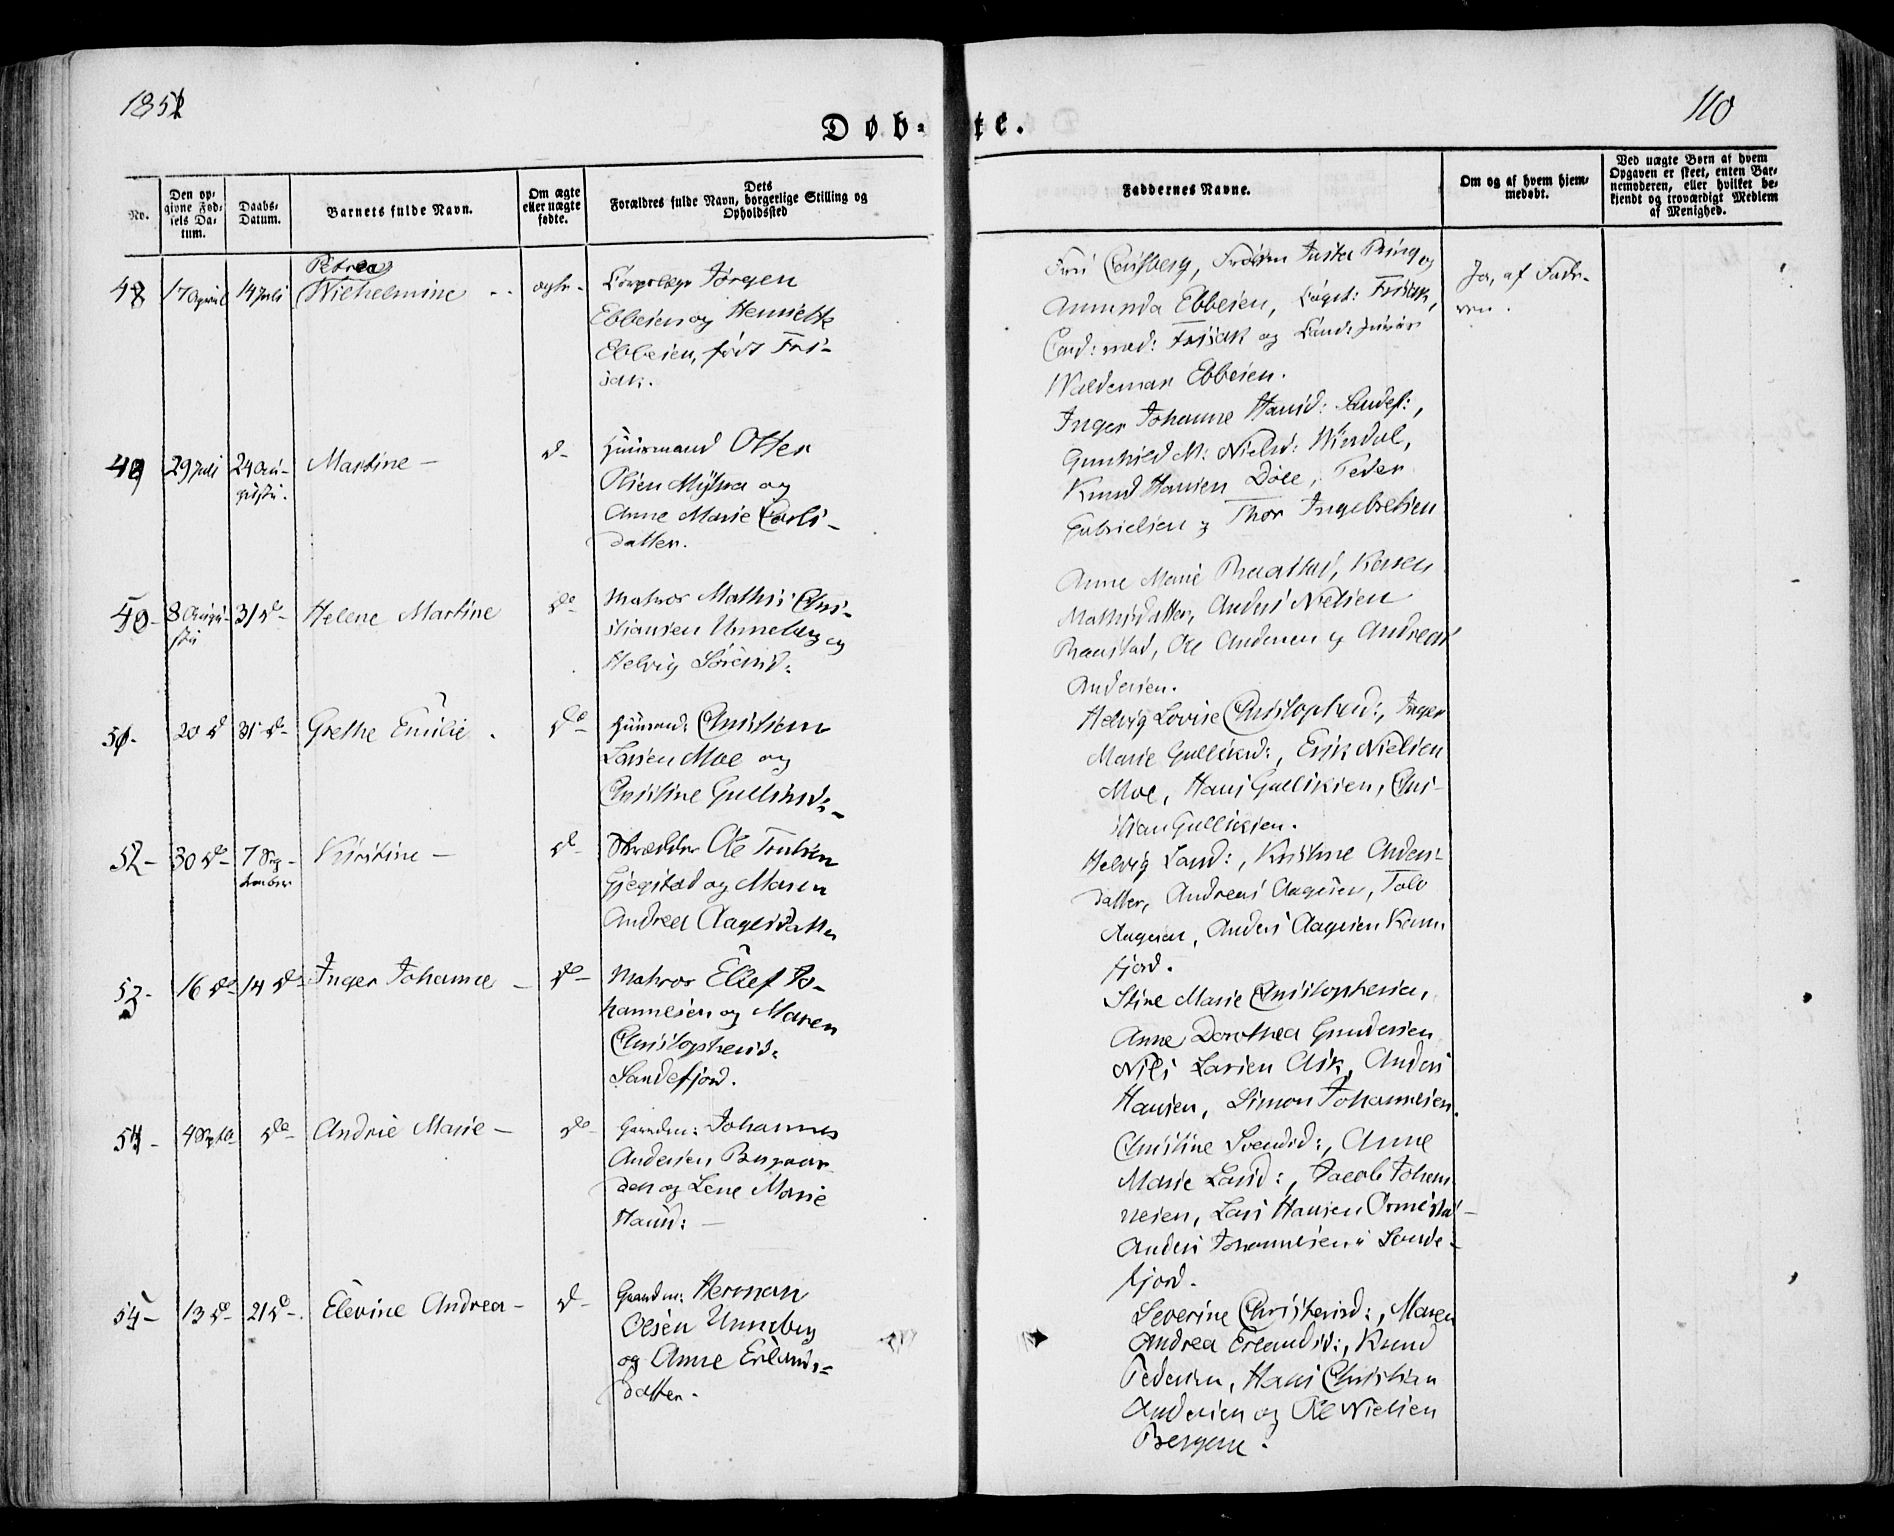 1851
110
Døb-
te.
No.
Den op-
givne Fød-
sels Da-
tum.
Daabs-
Datum.
Barnets fulde Navn.
Om ægte
eller uægte
fødte.
Dets
Forældres fulde Navn, borgerlige Stilling og
Opholdssted
Faddernes Navne.
Om og af hvem hjem-
medøbt.
Ved uægte Børn af hvem
Opgaven er skeet, enten Bar-
nemoderen, eller hvilket be-
kjendt og troværdigt Medlem
af Menighed.
48
17 April
14 Juli
Petrea
Wilhelmine
ægte
Jørgen
Ebbesen og Henriette
Ebbesen, født Fri-
sak.
og
Amunda Ebbesen, Frisak,
Cand: med: Frisak og
Waldemar Ebbesen.
Ja, af Fade-
ren.
49
29 Juli
24 Au-
gusti.
Martine
d-
Huusmand Otter
Olsen Myhra og
Anne Marie Carls-
datter.
Inger Johanne Hansd: Sandef:,
Gunhild M: Nielsd: Virdal,
Knud Hansen Døle, Peder
Gabrielsen & Thor Ingebretsen
50-
8 Augu-
sti
31 do-
Helene Martine
do
Matros Mathis Chri-
stiansen Unneberg og
Helvig Sørensd:
Anne Marie Raastad, Karen
Mathisdatter, Anders Nielsen
Raastad, Ole Andersen & Andreas
Andersen.
51-
20 d
31 d-
Grethe Emilie
do
Huusmd: Christian
Larsen Moe og
Christine Gulliksd:
Helvig Lovise Christophersd:, Inger
Marie Gulliksd:, Erik Nielsen
Moe, Hans Gulliksen, Chri-
stian Gulliksen.
52-
30 do-
7 Sep-
tember
Kirstine
d-
Skrædder Ole
Gjegstad og Maren
Andrea Aagesdatter
Helvig Larsd:, Kirstine Anders-
datter, Andreas Aagesen, Tolv
Aagesen, Anders Aagesen Kam-
fjord.
53-
16 do-
14 do-
Inger Johanne
do-
Matros Ellef Jo-
hannesen og Maren
Christophersd:
Sandefjord.
Stine Marie Christophersen,
Anne Dorothea Gundersen
Nils Larsen Ask, Anders
Hansen, Simon Johannesen.
54-
4 Septbr
do-
Andrie Marie
do-
Gaardm: Johannes
Andersen Bugaar-
den og Lene Marie
Hansd:
Christine Svendsd:, Anne
Marie Larsd:, Jacob Johan-
nesen, Lars Hansen Ormestad
Anders Johannesen i Sande-
fjord.
54-
13 do-
21 do-
Elevine Andrea
d-
Gaardm: Herman
Olsen Unneberg
og Anne Erlands-
datter.
Severine Christensd:, Maren
Andrea Erlandsd:, Knud
Pedersen, Hans Christian
Andersen og Ole Nielsen
Bergene.